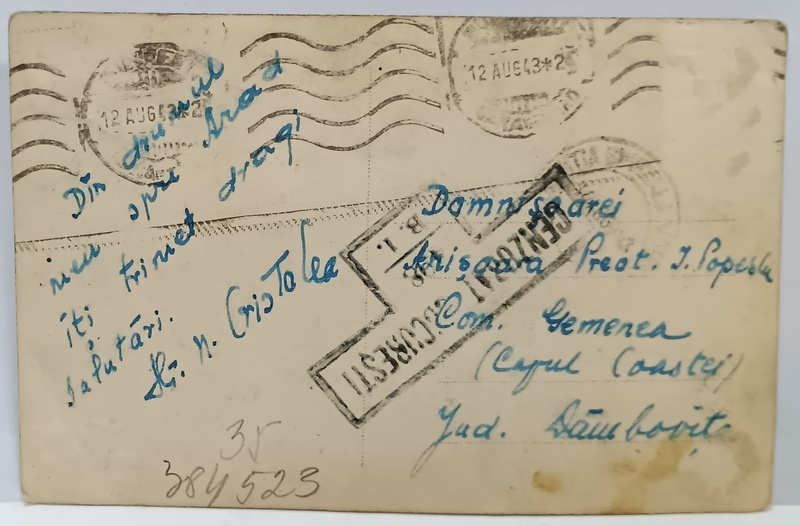 12 AUG 43 * 2
12 AUG 43 * 2
Din drumul
meu spre Arad
îți trimet dragi
salutări.
N. Cristalea
Domnișoarei
Anișoara Preot. I. Popescu
Com. Gemenea
(Capul Coastei)
Jud. Dâmbovița
CENZURAT BUCUREȘTI
B. I.
35
384523